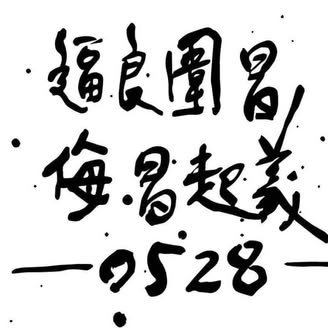 逼良圍冒
侮冒起義
0528